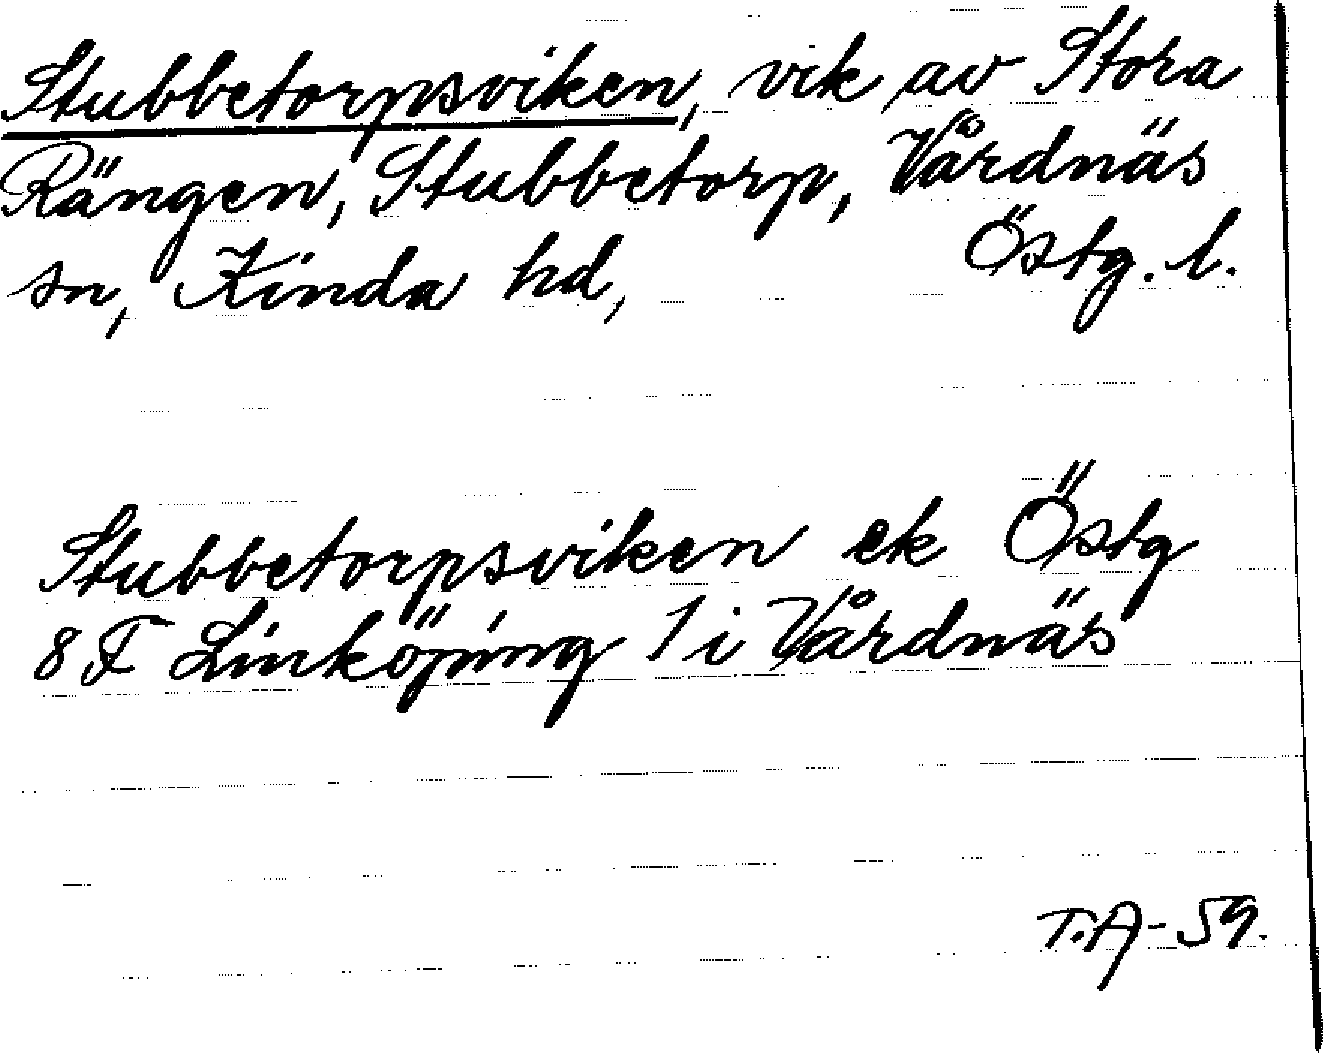 Stubbetorpsviken, vik av Stora
Rängen, Stubbetorp, Vårdnäs
sn, Kinda hd, Östg. l.
Stubbetorpsviken ek Östg
8 F Linköping 1 i Vårdnäs
T.A-59.